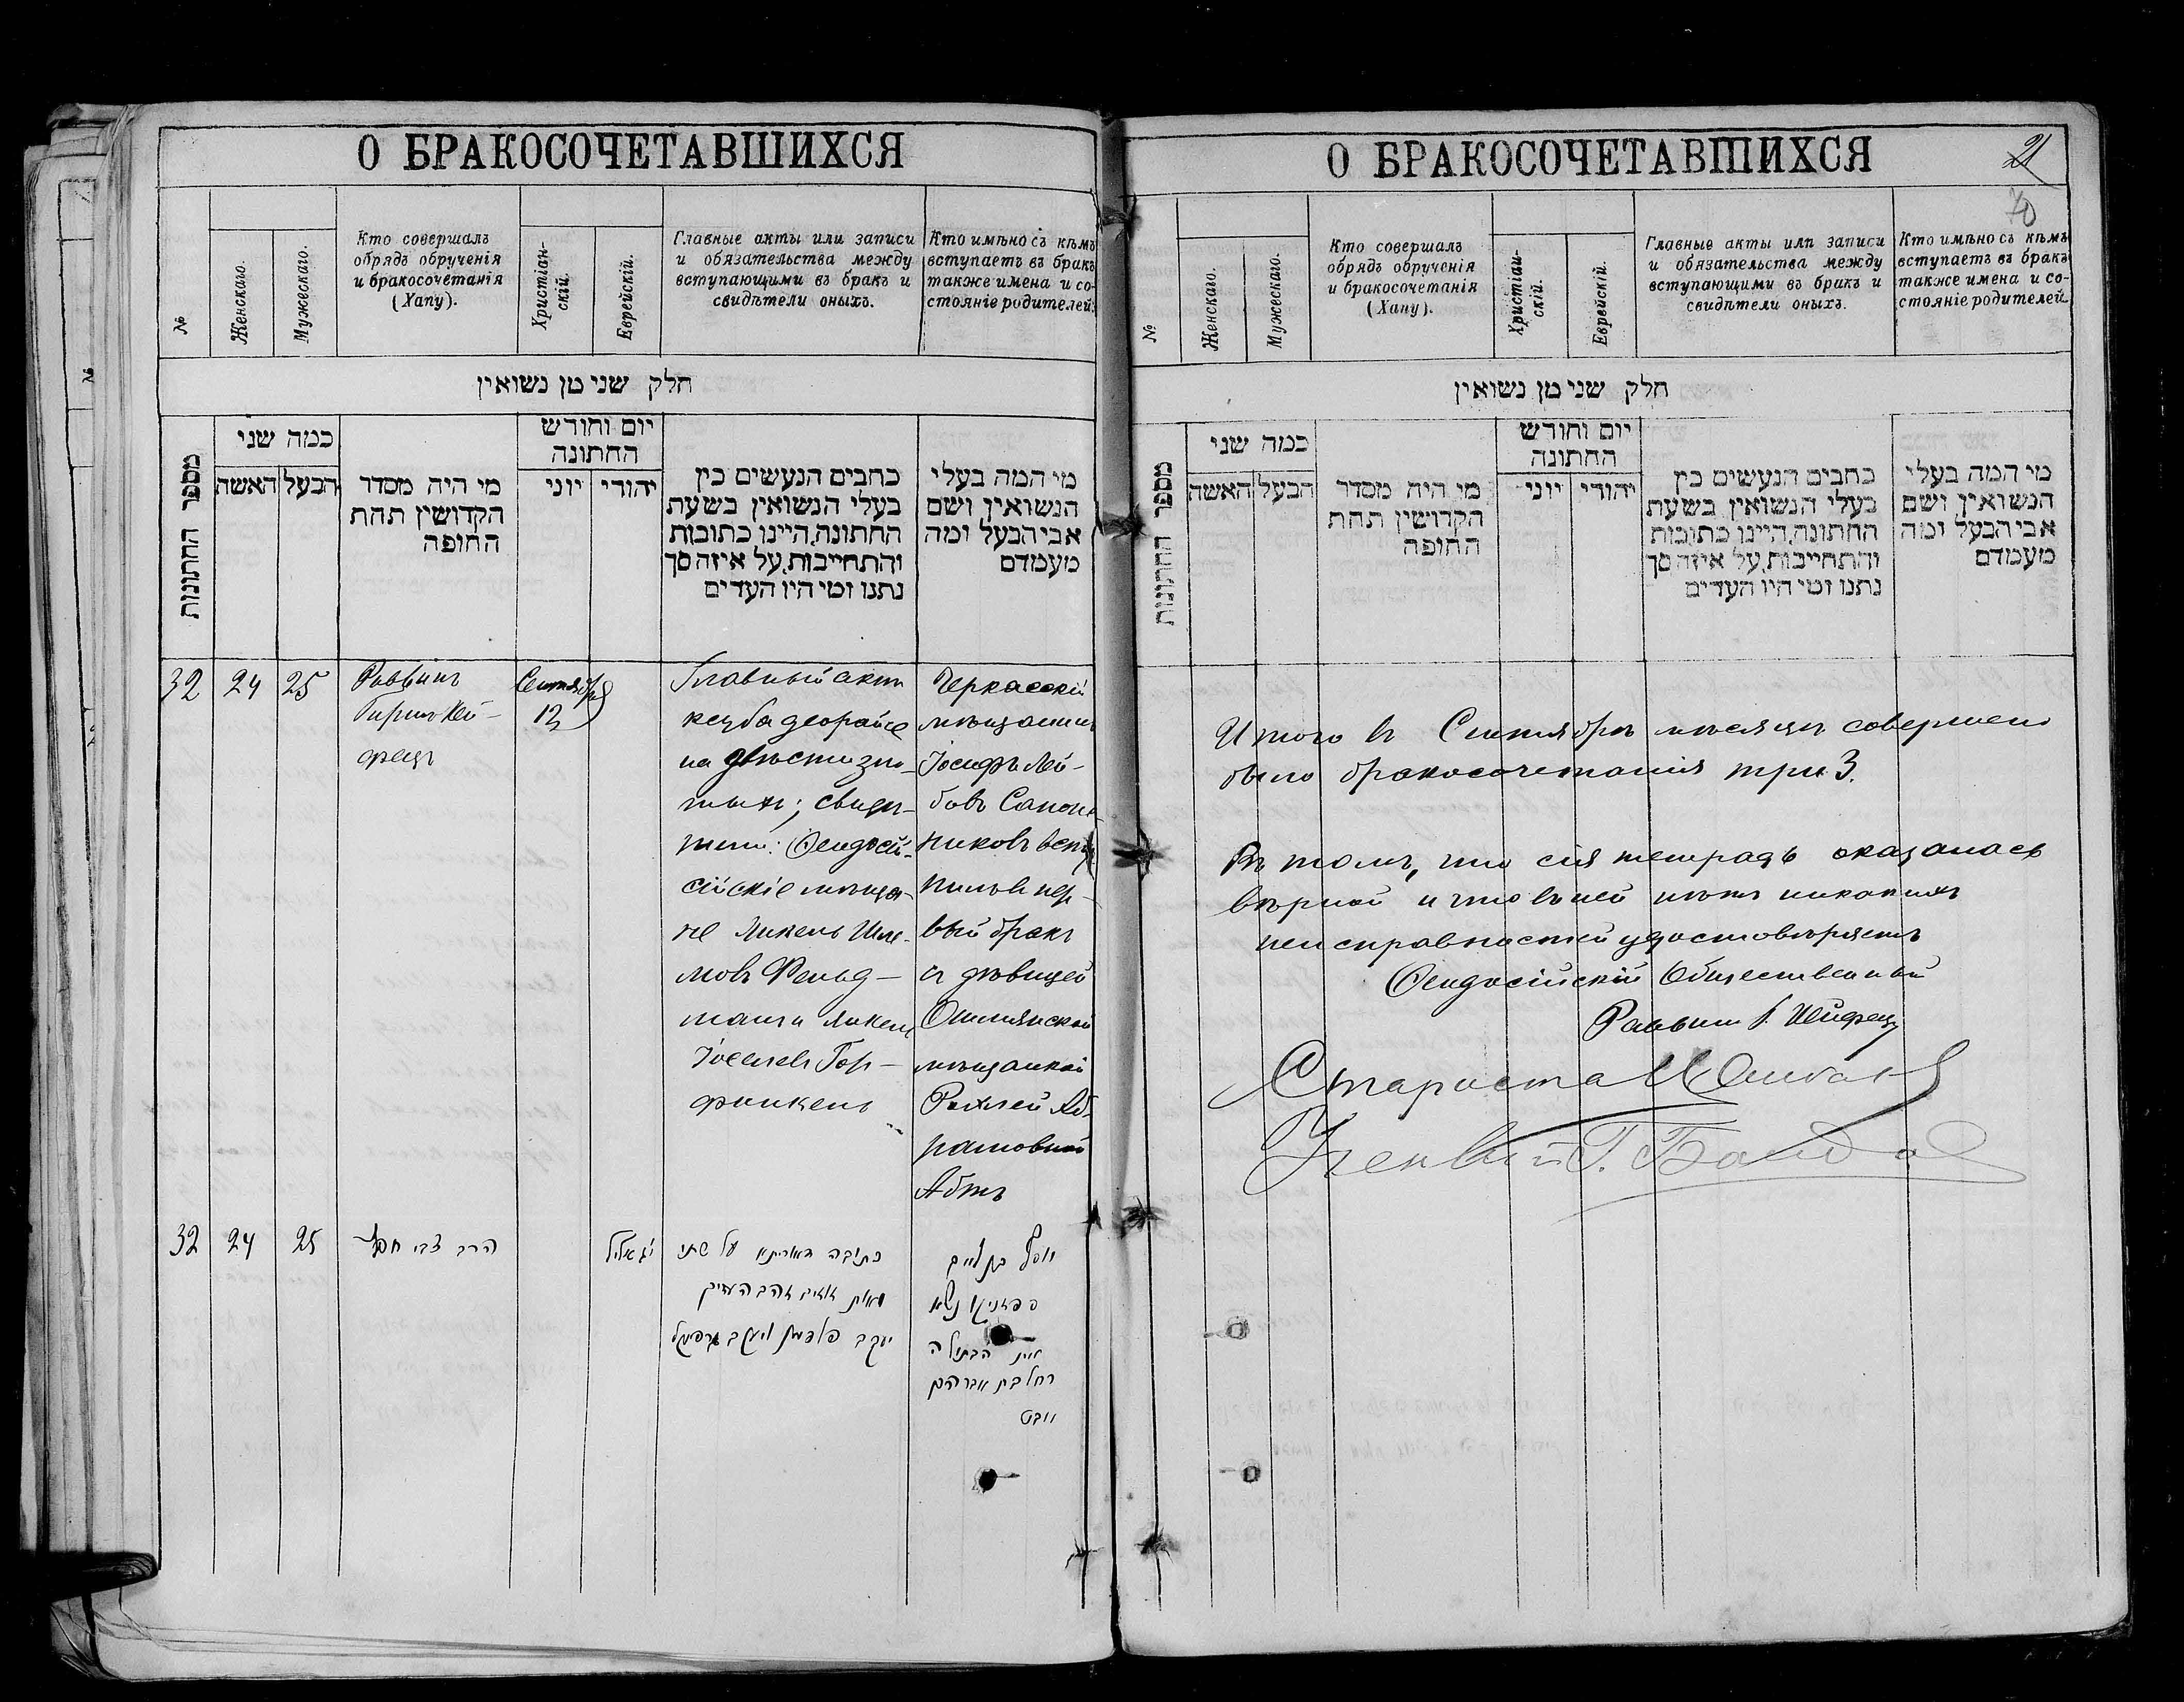 О БРАКОСОЧЕТАВШИХСЯ
№
Женскаго.
Мужескаго.
Кто совершалъ
обрядъ обрученія
и бракосочетанія
(Хапу).
Христіан-
скій.
Еврейскій.
Главные акты или записи
и обязательства между
вступающими въ бракъ и
свидѣтели оныхъ.
Кто имѣно съ кѣмъ
вступаетъ въ бракъ
также имена и со-
стояніе родителей.
חלק שני מן נשואין
מספר החתונות
כמה שני
האשה
הבעל
מי היה מסדר
הקדושין תחת
החופה
יום וחודש
החתונה
יוני
יהודי
כתבים הנעשים בין
בעלי הנשואין בשעת
החתונה, היינו כתובות
והתחייבות, על איזה סך
נתנו ומי היו העדים
מי המה בעלי
הנשואין ושם
אבי הבעל ומה
מעמדם
32
24
25
Раввинъ
Гиршъ Хей-
фецъ
Сентября
12
Главный актъ
кецуба деорайсе
на двѣсти зло-
тыхъ; свидѣ-
тели: Ѳеодосій-
скіе мѣща-
не
мовъ Фельд-
манъ и
финкель
Черкасскій
мѣщанинъ
Іосифъ Лей-
бовъ Сапож-
никовъ всту-
пилъ въ пер-
вый бракъ
съ дѣвицей
Ошмянской
мѣщанкой
Рахлей Аб-
рамовной
Абтъ
32
24
25
הרב צבי חפץ
כתובה דאוריתא על שתי
מאות
יעקב פלדמן ויעקב
יוסף בן לייב
נשא
את הבתולה
רחל בת אברהם
О БРАКОСОЧЕТАВШИХСЯ
21
70
№
Женскаго.
Мужескаго.
Кто совершалъ
обрядъ обрученія
и бракосочетанія
(Хапу).
Христіан-
скій.
Еврейскій.
Главные акты или записи
и обязательства между
вступающими въ бракъ и
свидѣтели оныхъ.
Кто имѣно съ кѣмъ
вступаетъ въ бракъ
также имена и со-
стояніе родителей.
חלק שני מן נשואין
מספר החתונות
כמה שני
האשה
הבעל
מי היה מסדר
הקדושין תחת
החופה
יום וחודש
החתונה
יוני
יהודי
כתבים הנעשים בין
בעלי הנשואין בשעת
החתונה, היינו כתובות
והתחייבות, על איזה סך
נתנו ומי היו העדים
מי המה בעלי
הנשואין ושם
אבי הבעל ומה
מעמדם
Итого въ Сентябрѣ мѣсяцѣ совершено
было бракосочетанія три 3.
Въ томъ, что сія тетрадь оказалась
вѣрной и что въ ней нѣтъ никакихъ
неисправностей удостовѣряетъ
Ѳеодосійскій Общественный
Раввинъ Г. Хейфецъ
Староста
Ученый Г.